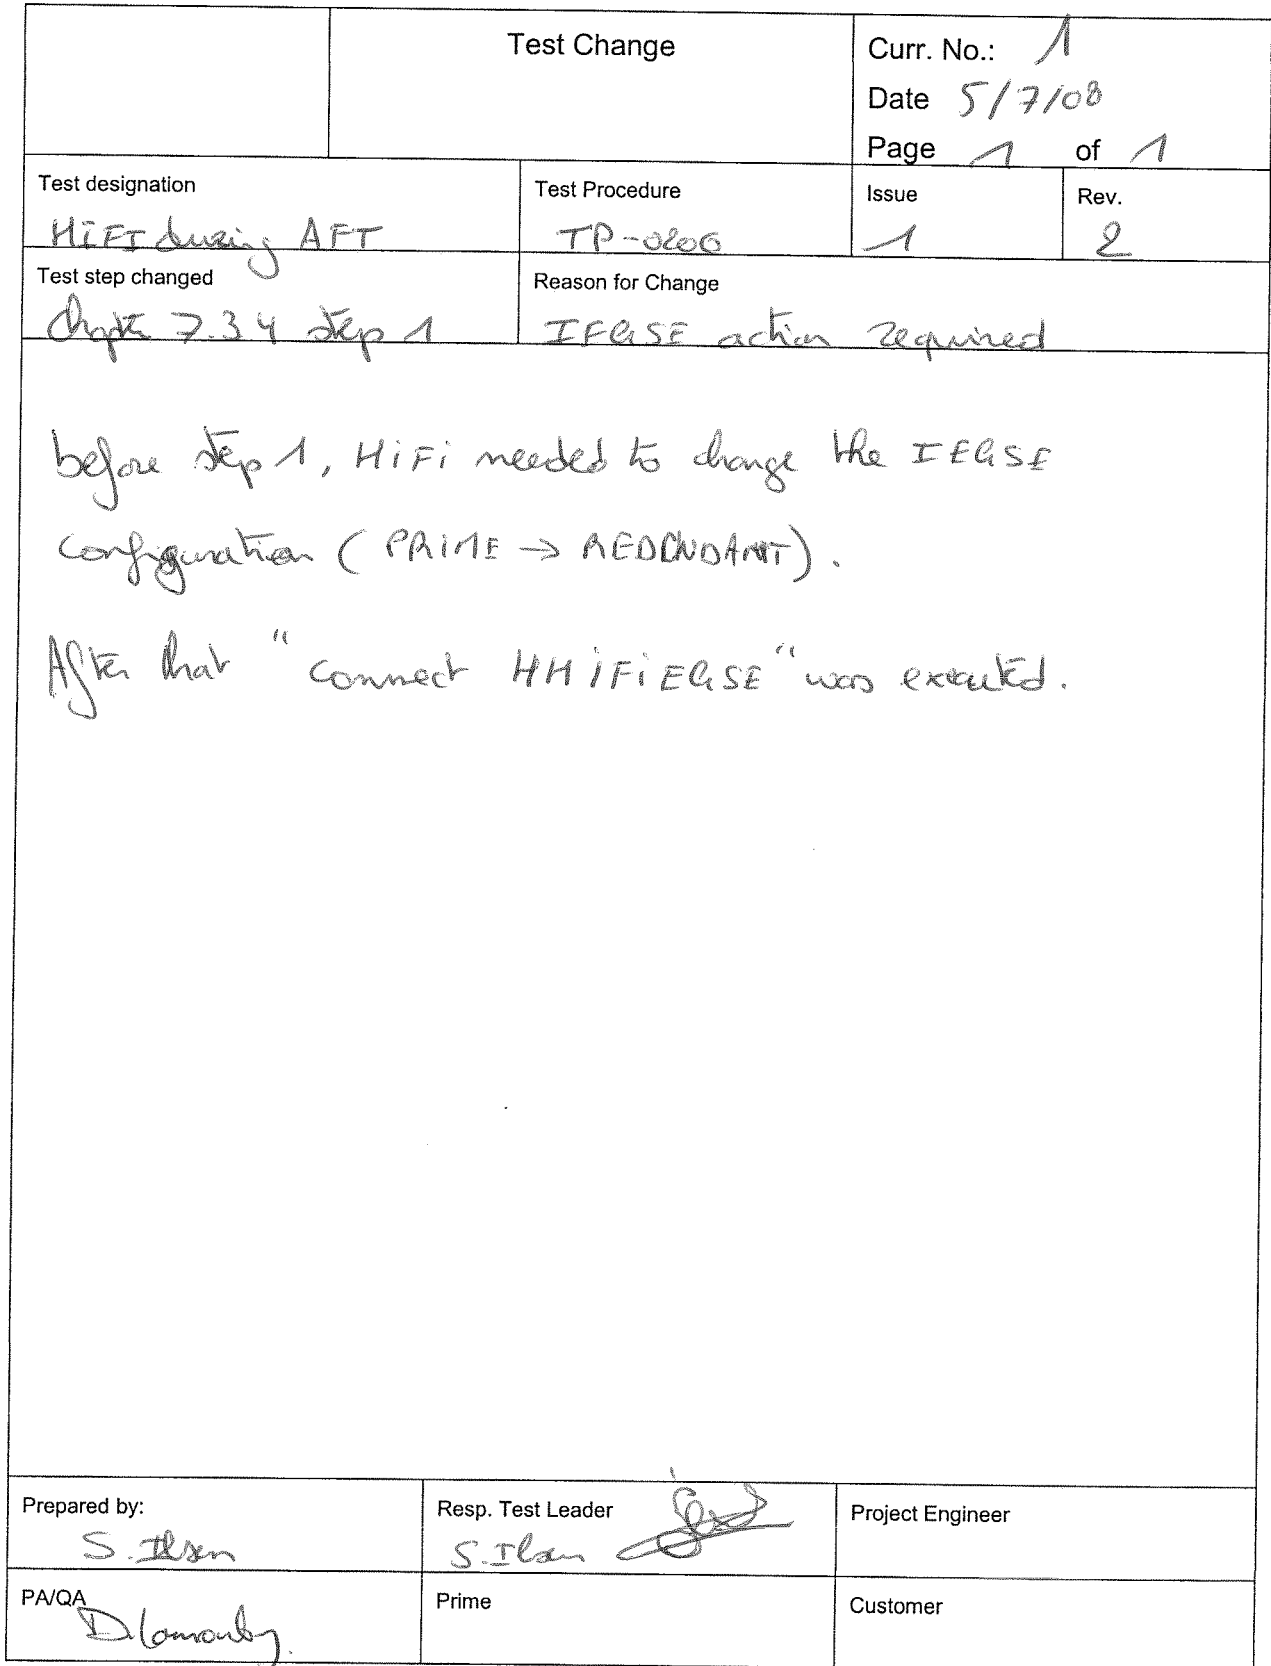 Test Change
Curr. No.: 1
Date 5/7/08
Page 1 of 1
Test designation
HIFI during AFT
Test Procedure
Issue
1
Rev.
2
Test step changed
7.3.4 step 1
Reason for Change
IEGSE action required
before step 1, HiFi needed to change the IEGSE
configuration (PRIME -> REDUNDANT).
After that "connect HHIFIEGSE" was executed.
Prepared by:
S. Ilsen
Resp. Test Leader
S. Ilsen
Project Engineer
PA/QA
Prime
Customer